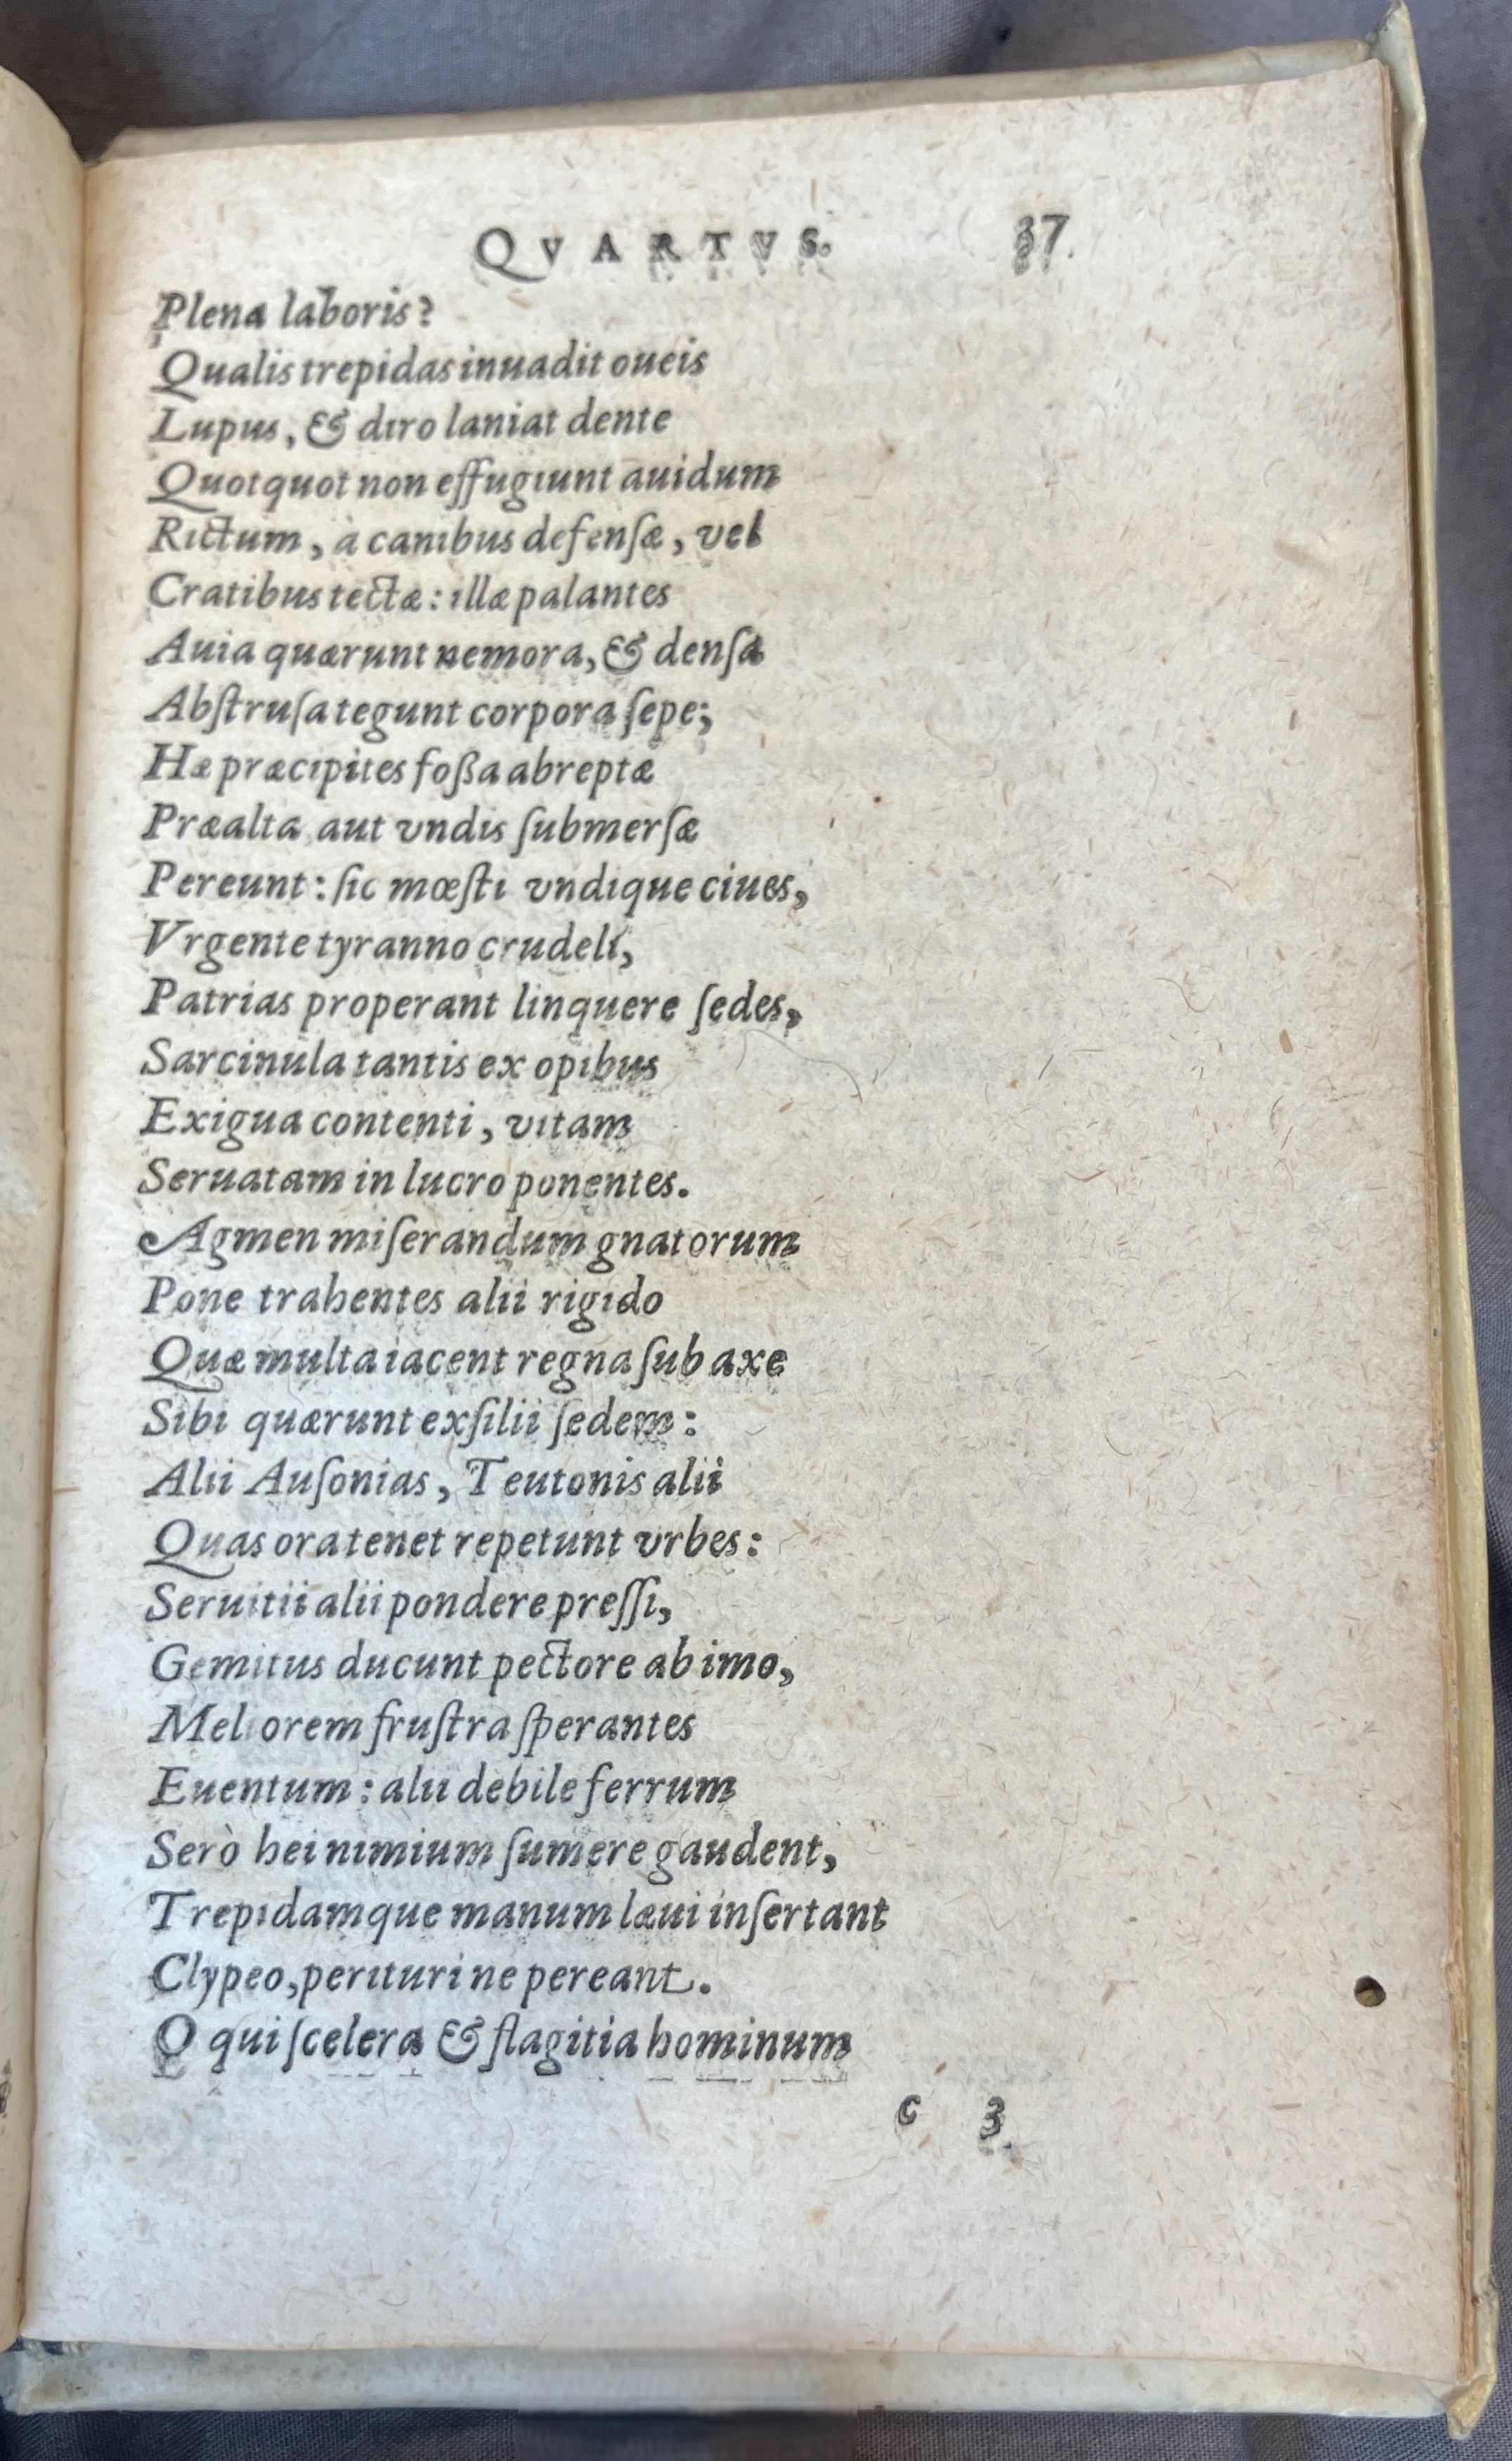 QVARTVS. 37
Plena laboris?
Qualis trepidas inuadit oueis
Lupus, & diro laniat dente
Quotquot non effugiunt auidum
Rictum, à canibus defensæ, vel
Cratibus tectæ: illæ palantes
Auia quærunt nemora, & densa
Abſtruſa tegunt corpora ſepe;
Hæ præcipites foßa abreptæ
Præalta aut vndis ſubmerſæ
Pereunt: ſic mœſti vndique ciues,
Vrgente tyranno crudeli,
Patrias properant linquere ſedes,
Sarcinula tantis ex opibus
Exigua contenti, vitam
Seruatam in lucro ponentes.
Agmen miſerandum gnatorum
Pone trahentes alii rigido
Quæ multa iacent regna ſub axe
Sibi quærunt exſilii ſedem:
Alii Auſonias, Teutonis alii
Quas ora tenet repetunt vrbes:
Seruitii alii pondere preſſi,
Gemitus ducunt pectore ab imo,
Meliorem fruſtra ſperantes
Euentum: alii debile ferrum
Serò hei nimium ſumere gaudent,
Trepidamque manum læui inſertant
Clypeo, perituri ne pereant.
O qui ſcelera & flagitia hominum
c 3